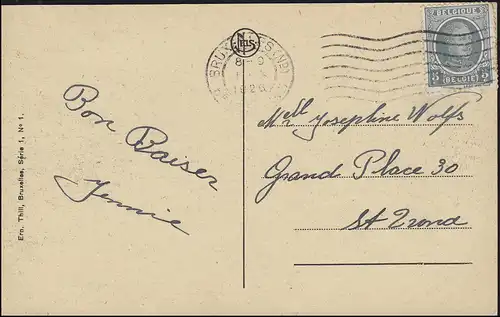 BELGIQUE
5 5
BELGIË
BRUXELLES (Nd)
1926
Bon Baiser
Jennie
Melle Josephine Wolfs
Grand Place 30
St Trond
Ern. Thill, Bruxelles, Série 1, No 1.